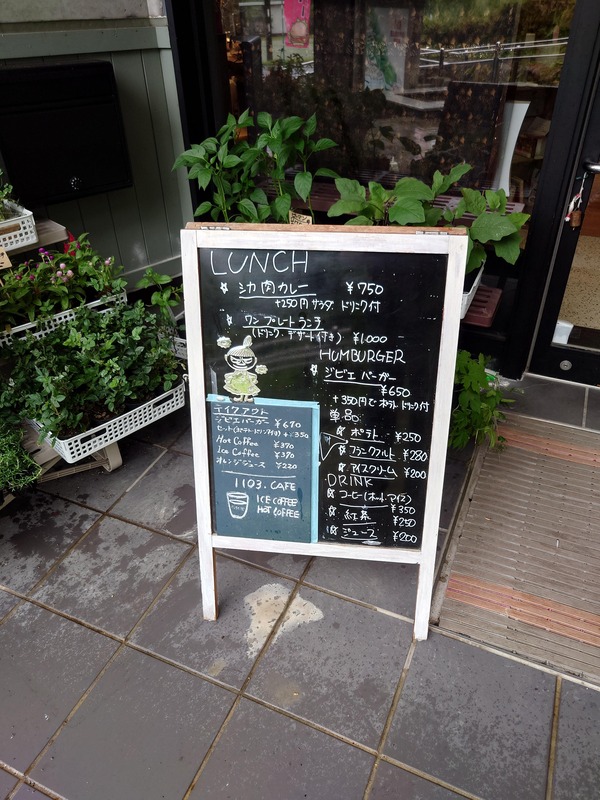 LUNCH
シカ肉カレー ¥750
+250円 サラダ ドリンク付
ワンプレートランチ
(ドリンク・デザート付き) ¥1000
HUMBURGER
ジビエバーガー
¥650
+350円で ポテト ドリンク付
単品
ポテト ¥250
フランクフルト ¥280
アイスクリーム ¥200
DRINK
コーヒー(ホット・アイス)
¥350
紅茶 ¥250
ジュース ¥200
テイクアウト
ジビエバーガー ¥670
セット(ポテト・ドリンク付き) +¥350
Hot Coffee ¥370
Ice Coffee ¥370
オレンジジュース ¥220
1103. CAFE
ICE COFFEE
HOT COFFEE